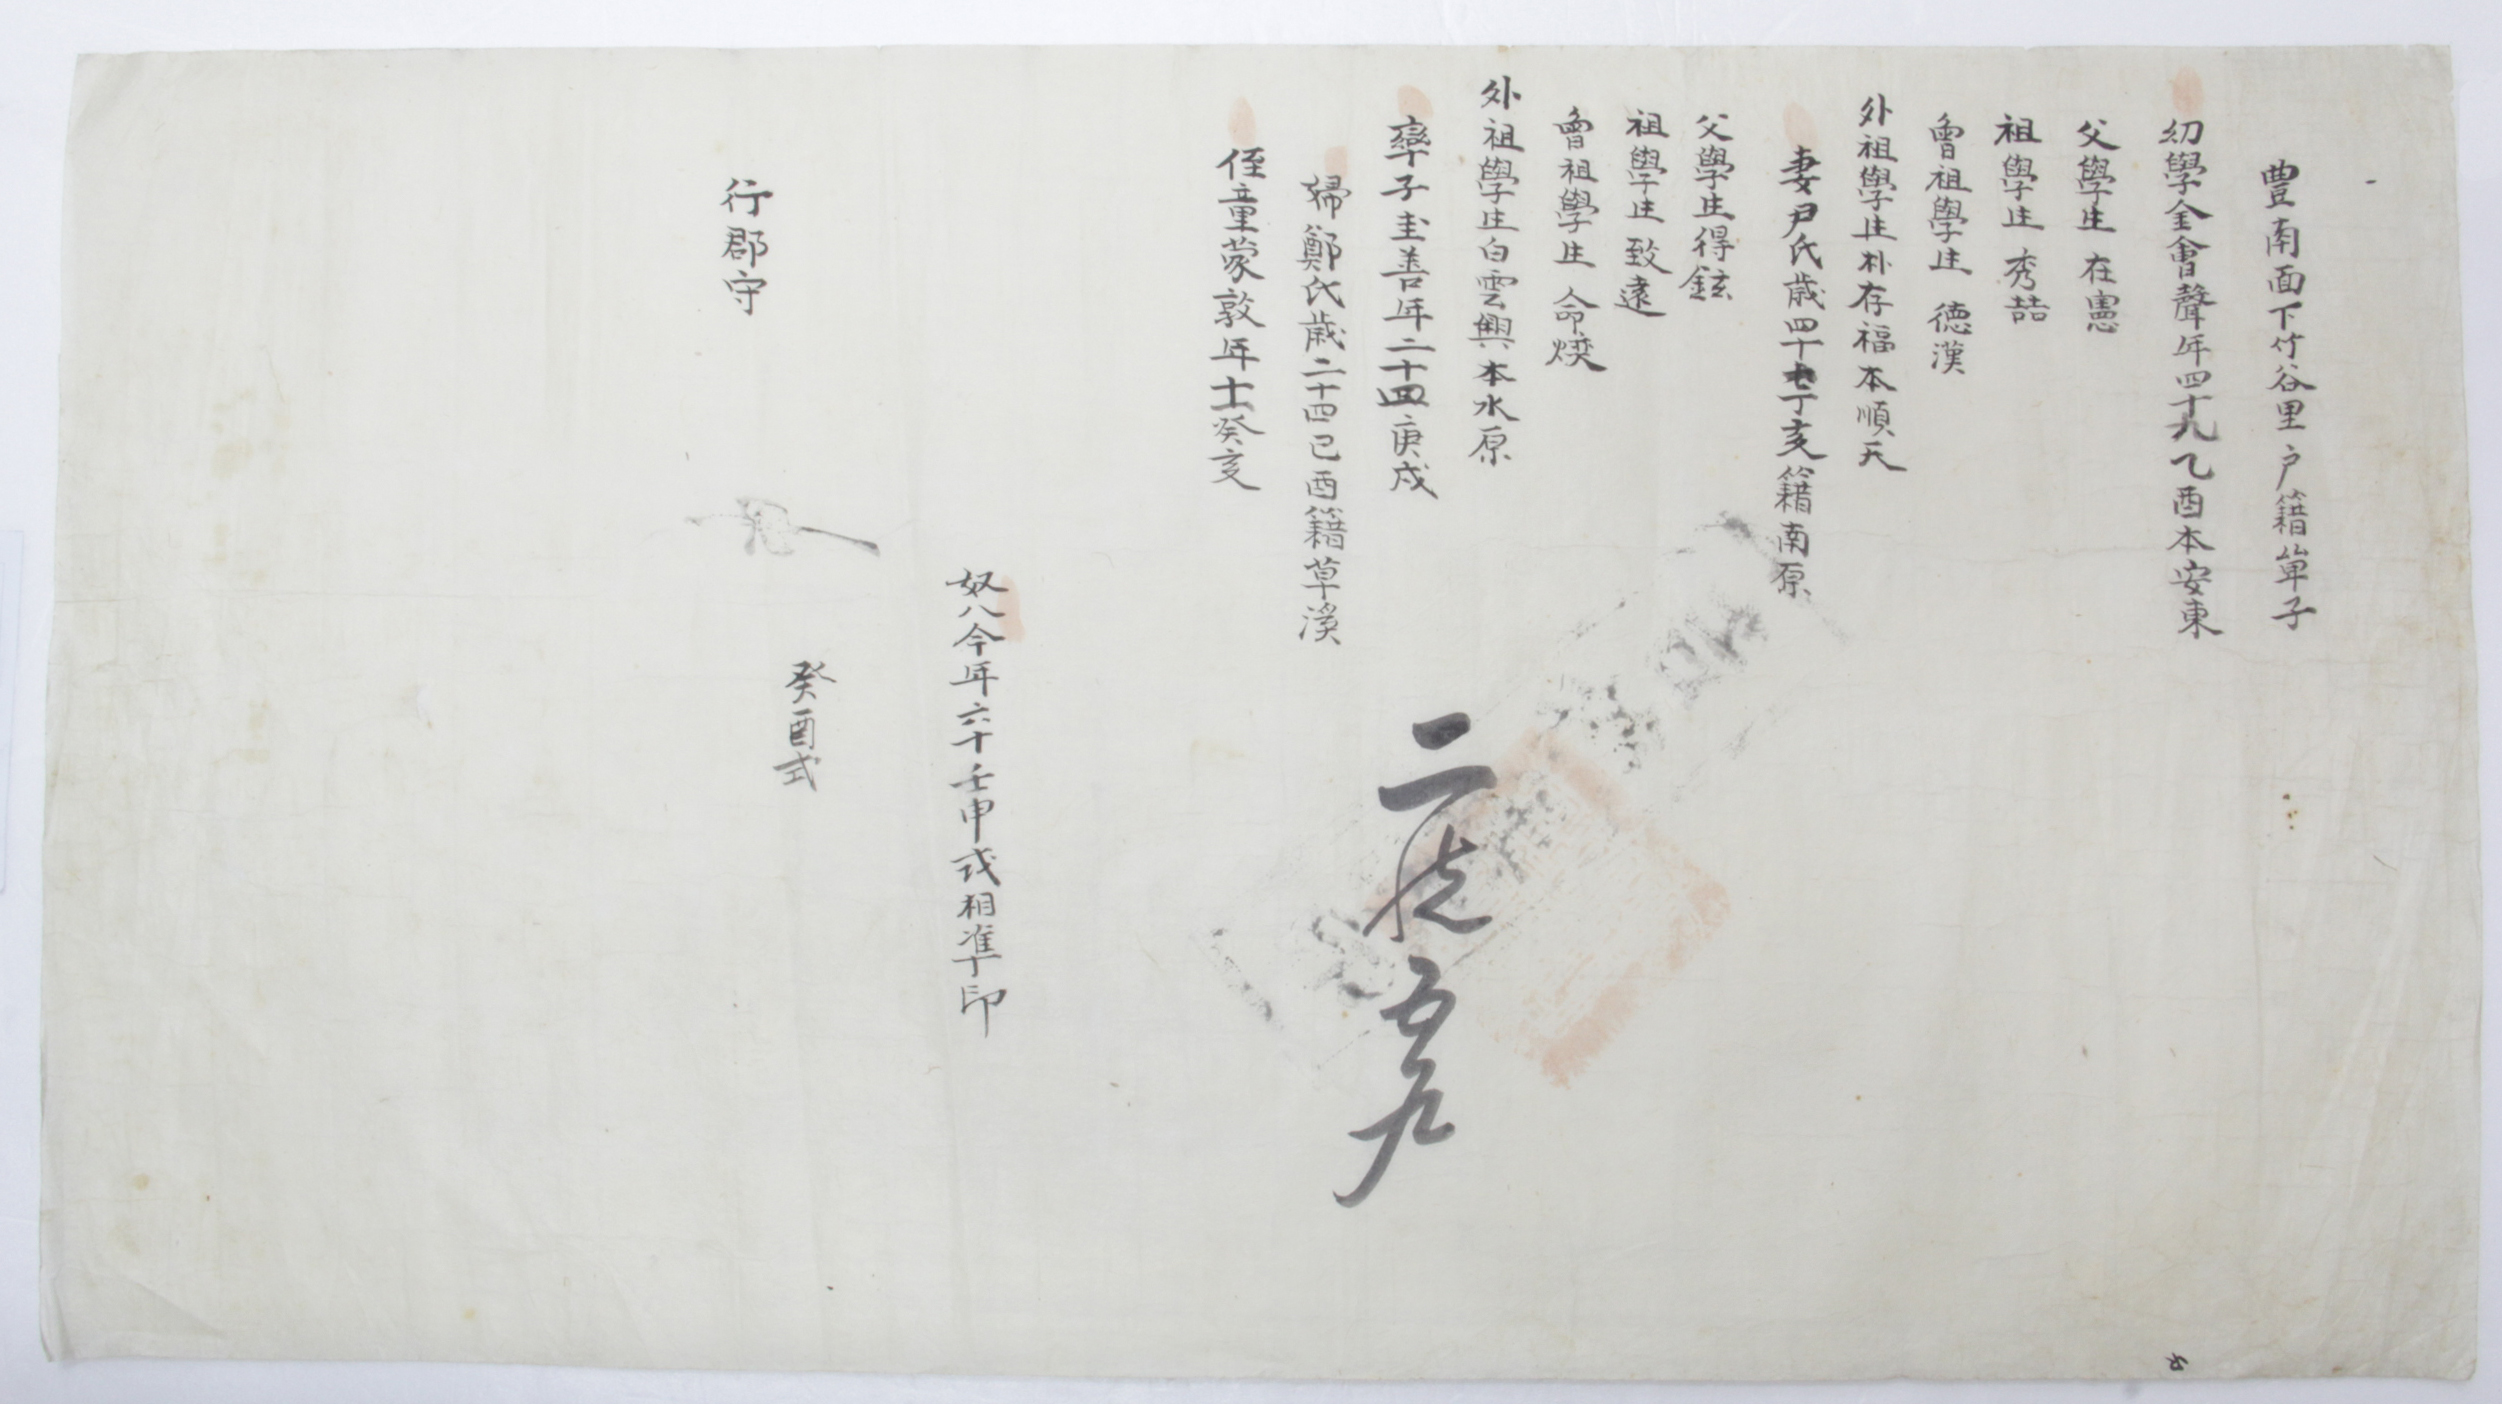 豊南面下竹谷里户籍单子
幼學金會聲年四十九乙酉本安東
父學生 在憲
祖學生 秀喆
曾祖學生 德漢
外祖學生朴存福本順天
妻尹氏歲四十七丁亥籍南原
父學生得鉉
祖學生致遠
曾祖學生 命煐
外祖學生白雲興本水原
率子圭善年二十四庚戌
婦鄭氏歲二十四己酉籍草溪
侄童蒙敦年十一癸亥
二統五戶
奴八今年六十壬申戎相准印
癸酉式
行郡守